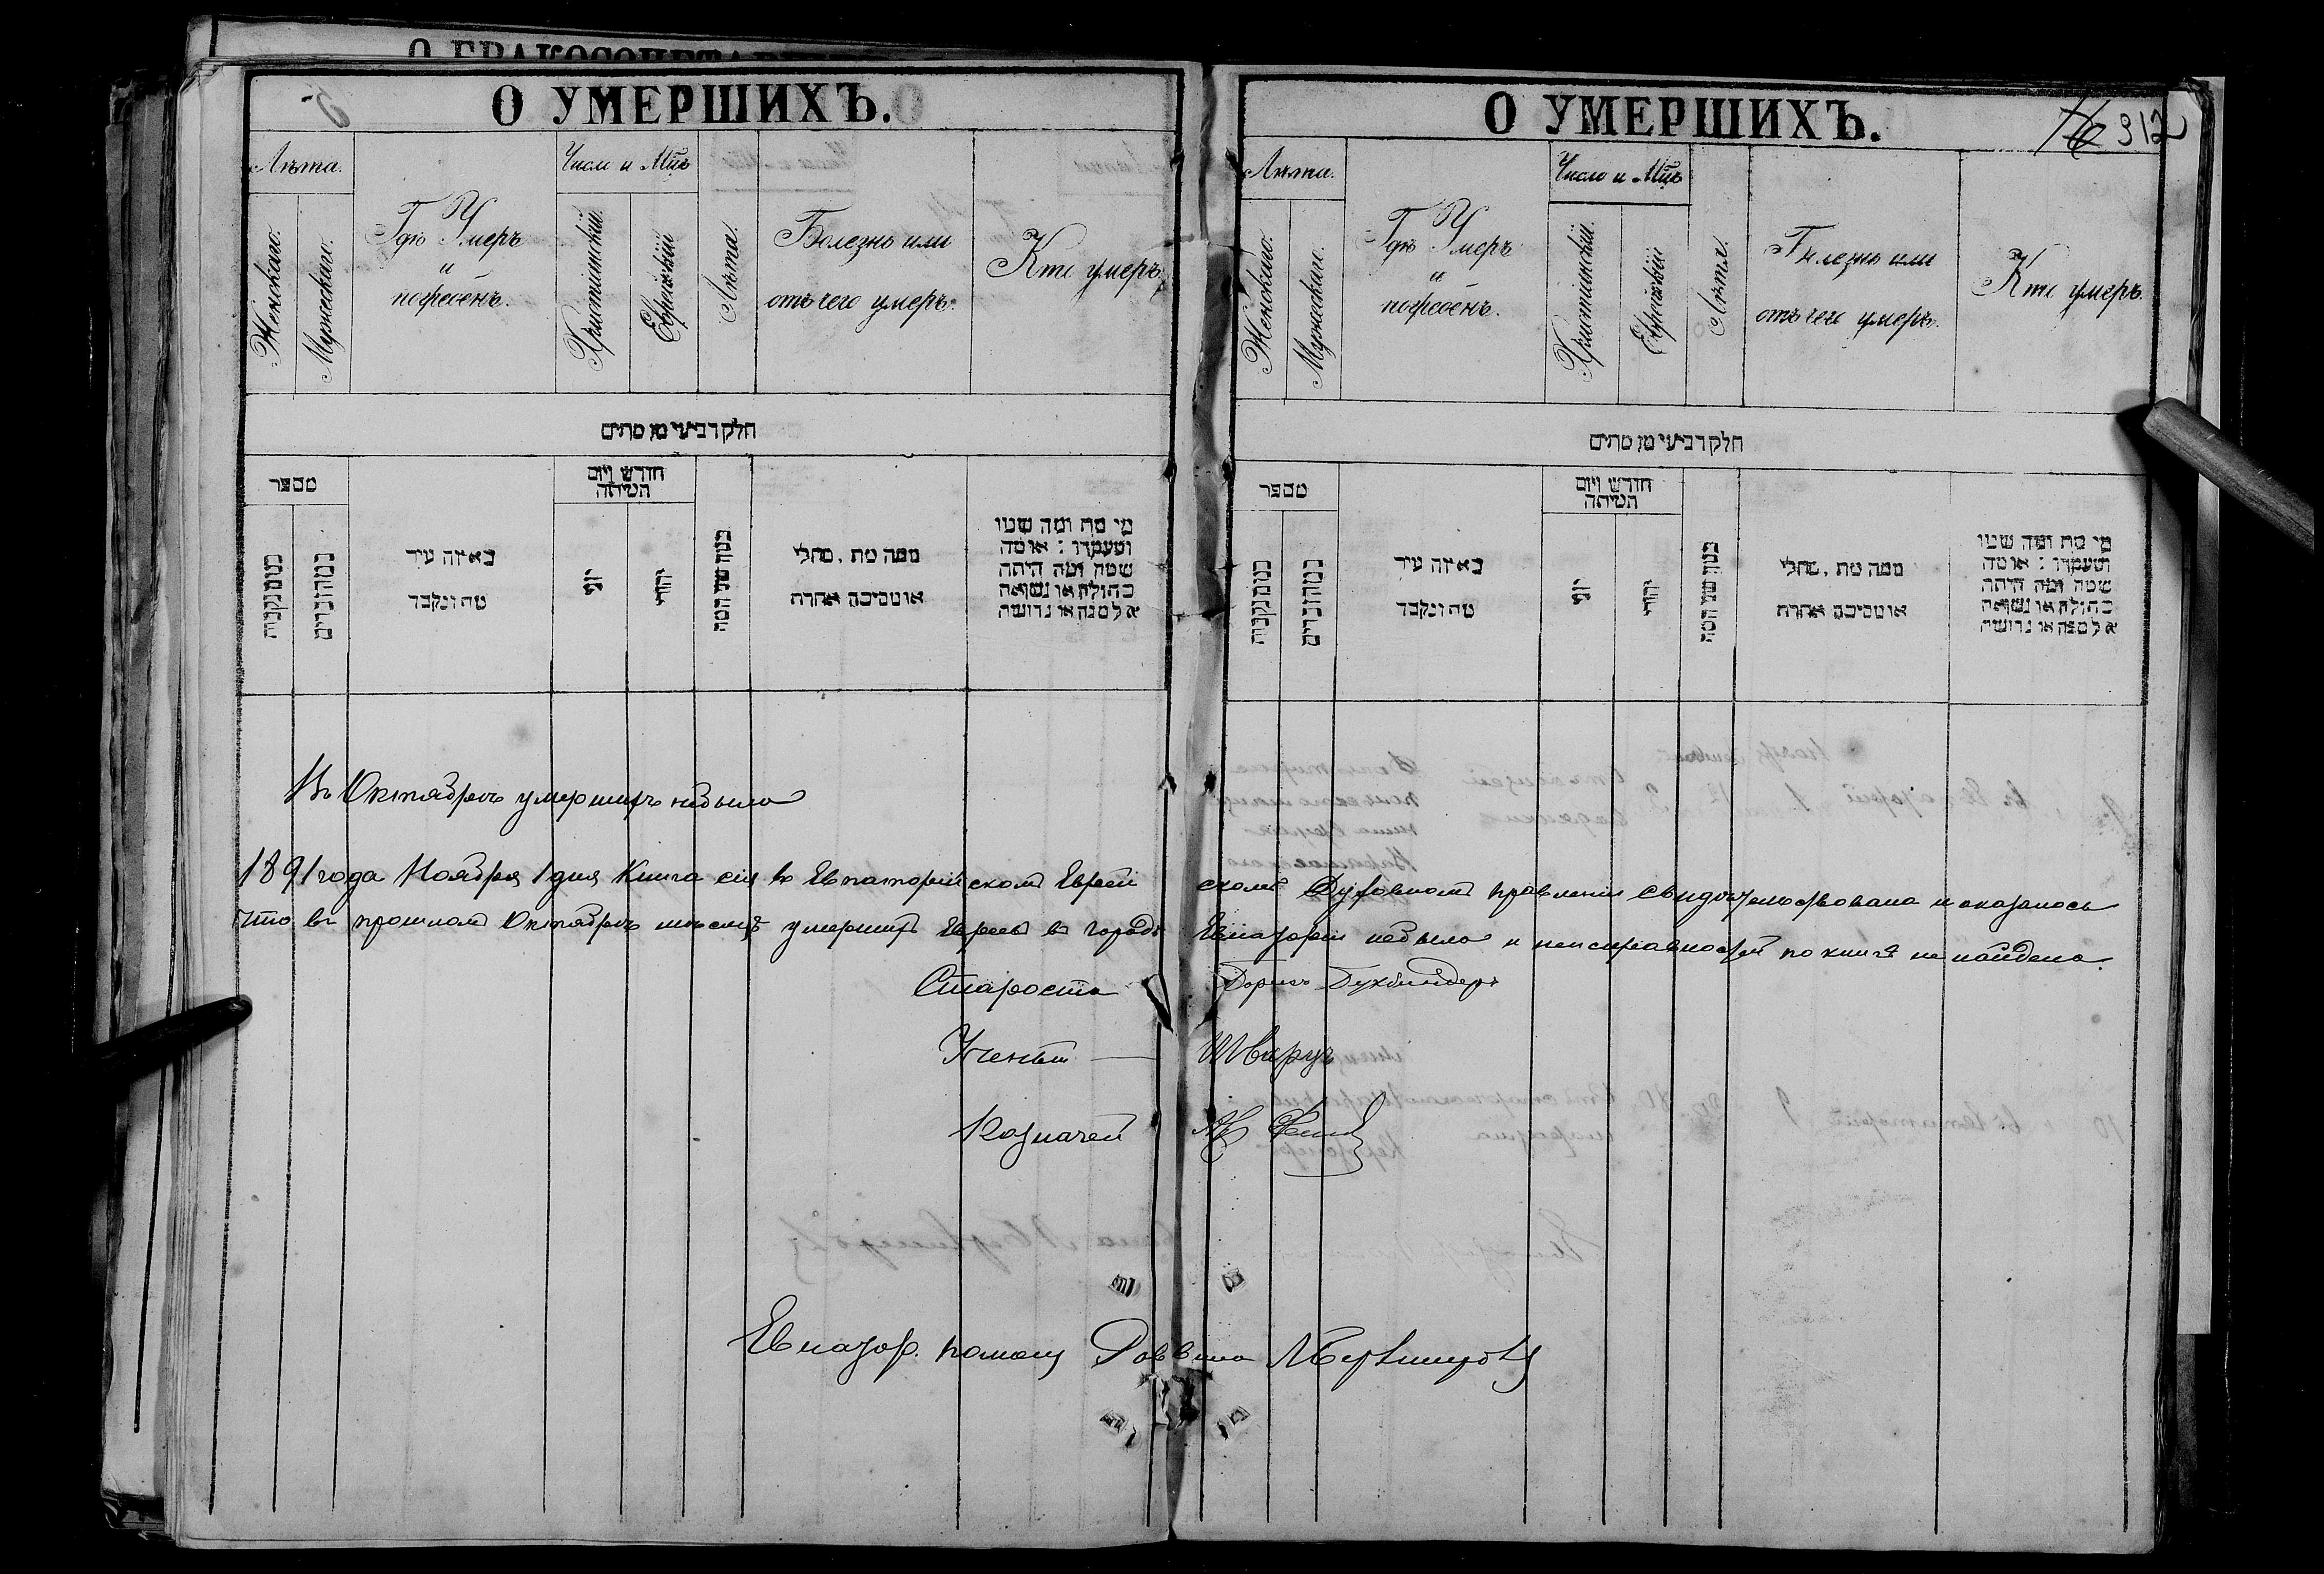 О УМЕРШИХЪ.
Лѣта.
Женскаго.
Мужескаго.
Гдѣ Умеръ
и
погребенъ.
Число и Мцъ
Христіанскій.
Еврейскій
Лѣта.
Болезнь или
отъ чего умеръ.
Кто умеръ.
חלק רביעי מן מתים
מספר
כמה נקבות
כמה זכרים
באיזה עיר
מת ונקבר
חודש ויום
המיתה
יוני
יהודי
כמה שני המת
ממה מת, מחלי
או מסיבה אחרת
מי מת ומה שמו
ומעמדו : או מה
שמה ומה היתה
בתולה או נשואה
אלמנה או גרושה
О УМЕРШИХЪ.
312
Лѣта.
Женскаго.
Мужескаго.
Гдѣ Умеръ
и
погребенъ.
Число и Мцъ
Христіанскій.
Еврейскій
Лѣта.
Болезнь или
отъ чего умеръ.
Кто умеръ.
חלק רביעי מן מתים
מספר
כמה נקבות
כמה זכרים
באיזה עיר
מת ונקבר
חודש ויום
המיתה
יוני
יהודי
כמה שני המת
ממה מת, מחלי
או מסיבה אחרת
מי מת ומה שמו
ומעמדו : או מה
שמה ומה היתה
בתולה או נשואה
אלמנה או גרושה
Въ Октябрѣ умершихъ небыло
1891 года Ноября 1 дня Книга сія въ Евпаторійскомъ Еврей скомъ Духовномъ правленіи свидѣтельствована и оказалось
что въ прошломъ Октябрѣ мѣсяцѣ умершихъ Евреевъ въ городѣ Евпаторіи небыло и неисправностей по книгѣ не найдено.
Староста Борисъ Бухбиндеръ
Ученый — Шварцъ
Казначей
Евпатор. помощ Раввина